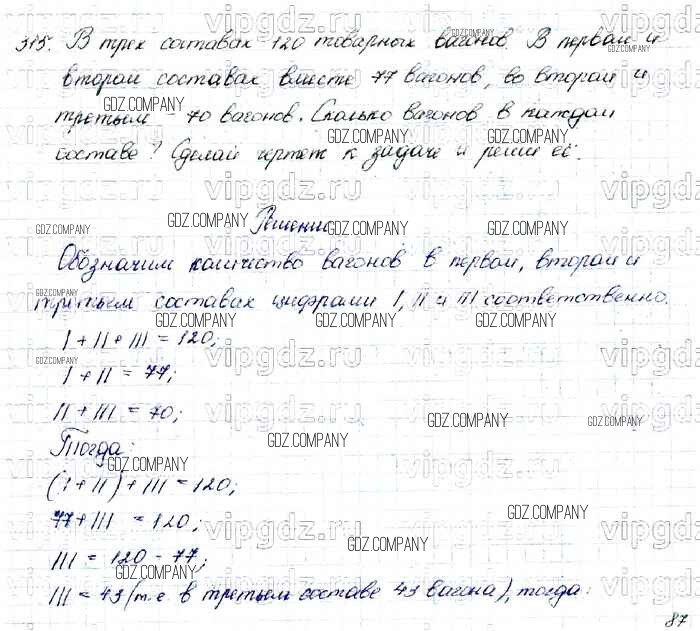 315. В трех составах 120 товарных вагонов. В первом и
втором составах вместе 77 вагонов, во втором и
третьем - 70 вагонов. Сколько вагонов в каждом
составе? Сделай чертеж к задаче и реши её.
Решение
Обозначим количество вагонов в первом, втором и
третьем составах цифрами I, II и III соответственно.
I + II + III = 120;
I + II = 77;
II + III = 70;
Тогда:
(I + II) + III = 120;
77 + III = 120;
III = 120 - 77;
III = 43 (т.е. в третьем составе 43 вагона), тогда:
87
vipgdz.ru
GDZ.COMPANY